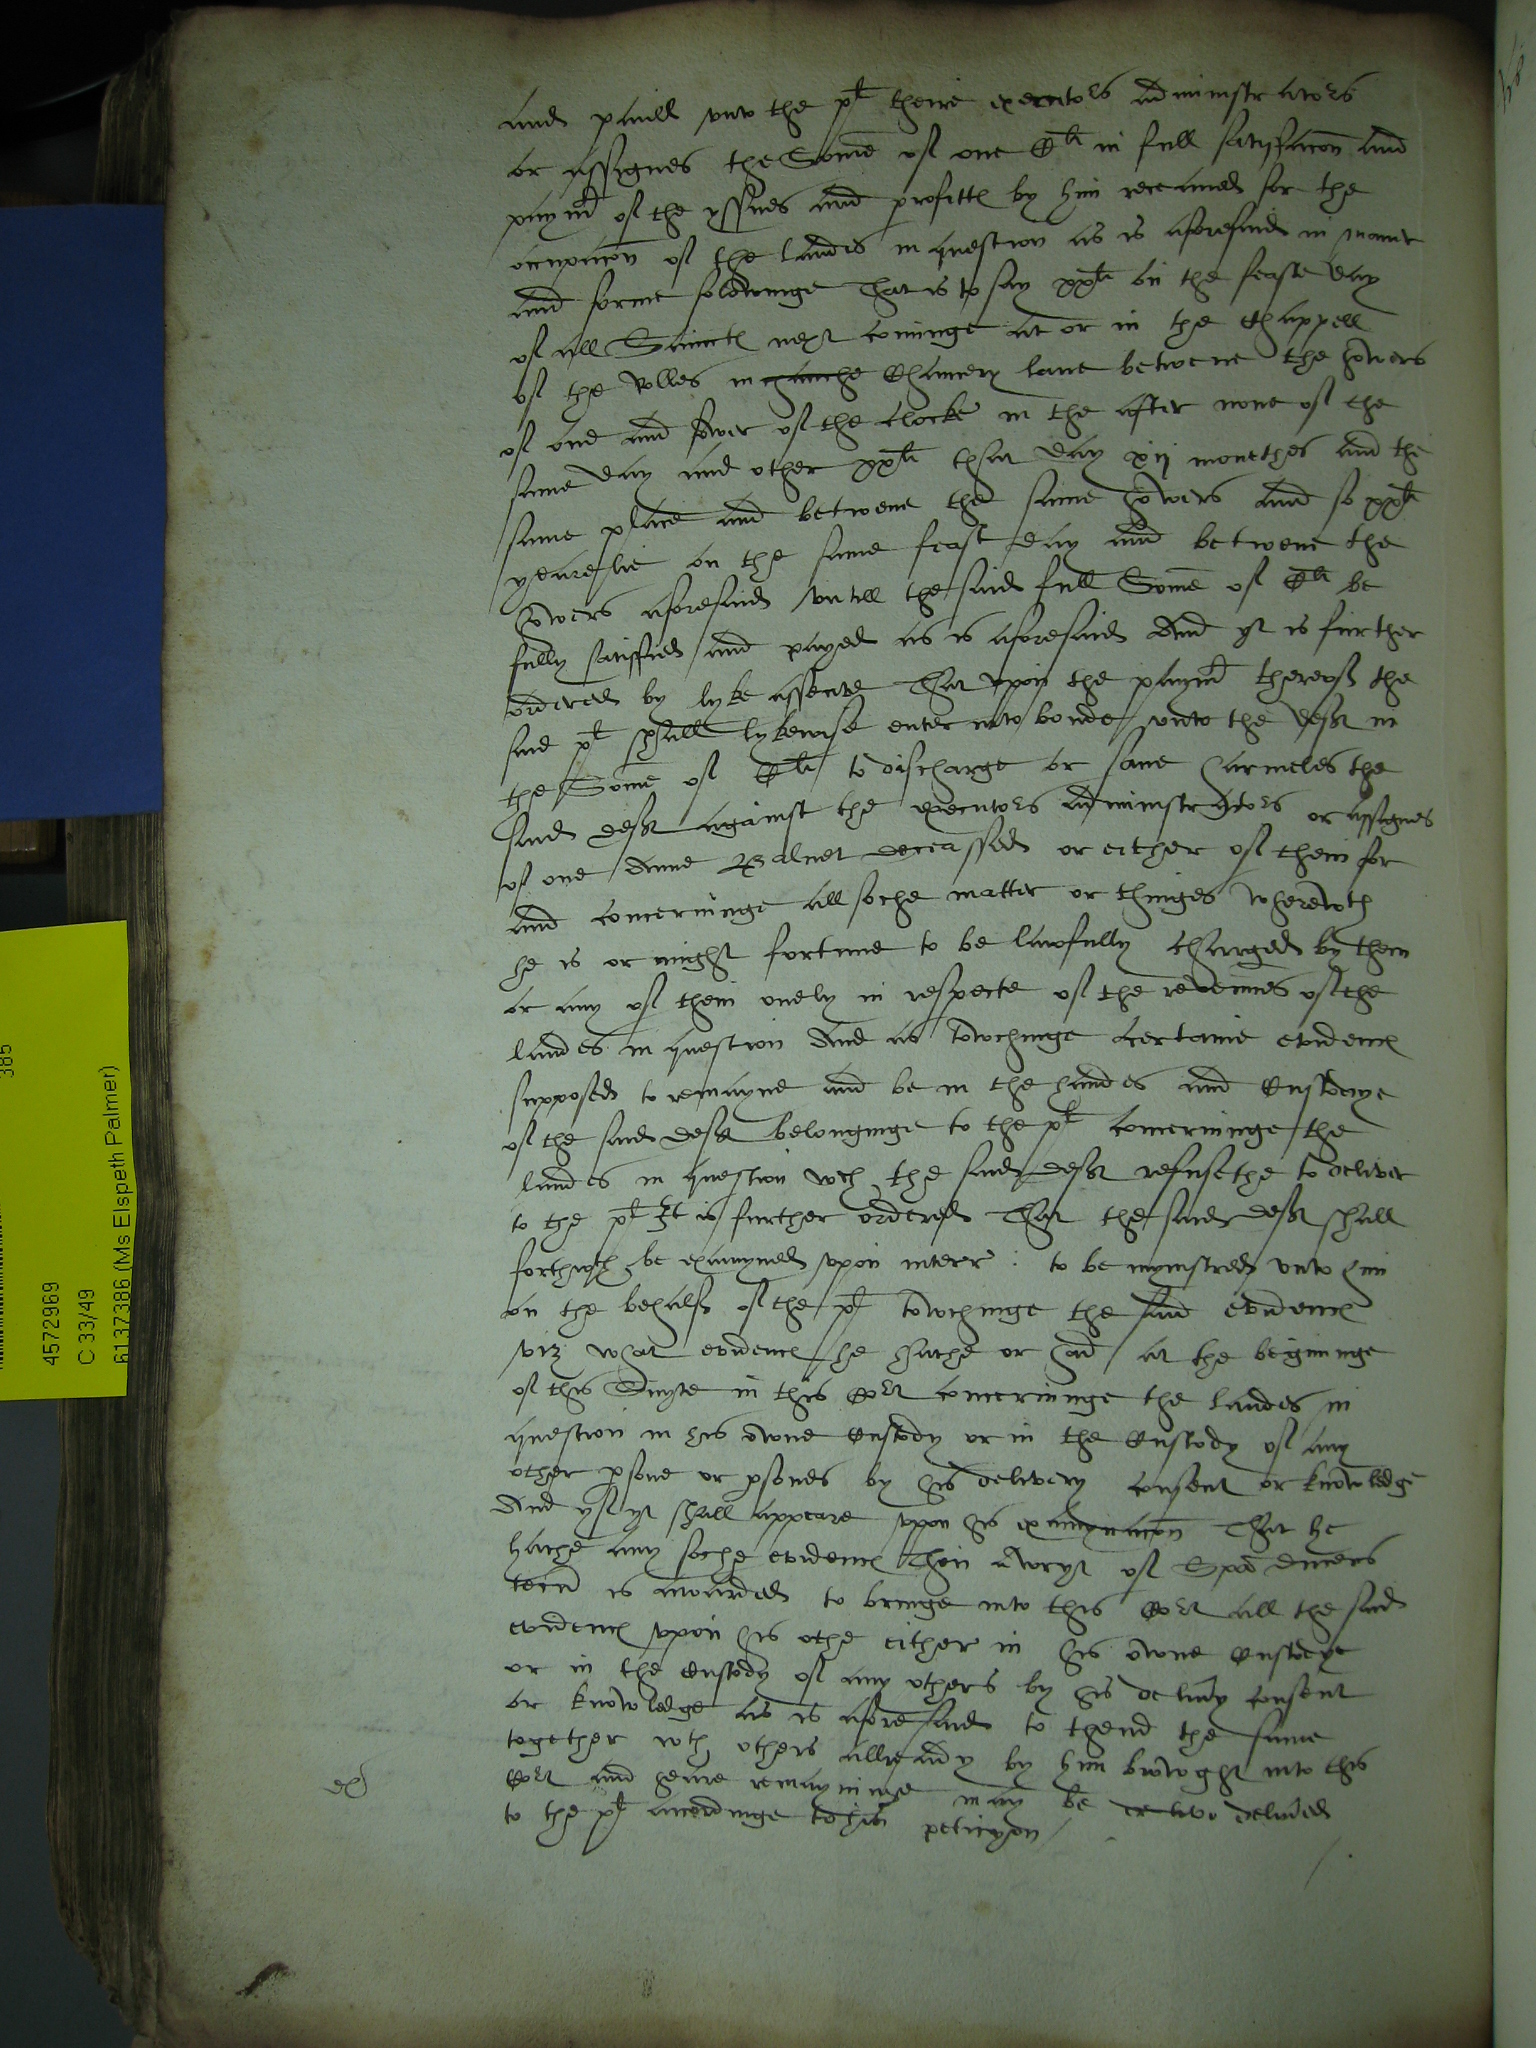 and paiell unto the plt theire executors administrators
or assignes the Some of one Cli in full satisfaccon and
paymt of the yssues and profittes by him receaued for the
occupacon of the landes in question as is aforesaid in maner
and forme folowinge That is to say xxli on the feaste day
of all Sainctes next cominge at or in the Chappell
of the Rolles in chauche Chancery lane betwene the howers
of one and fower of the clocke in the after none of the
same day and other xxli that day xij monethes and the
same place and betwene the same howers and so xxli
yearelie on the same feast day and betwene the
howers aforesaid vntill the said full Some of Cli be
fully satisfied and payed as is aforesaid And yt is further
ordered by lyke assente That vpon the paymt thereof the
said plt shall lykewise enter into bonde vnto the deft in
the Some of Cli to discharge or saue harmeles the
said deft against the executors administrators or assignes
of one Anne deceassed or either of them for
and concerninge all soche matter or thinges wherewth
he is or might fortune to be lawfully charged by them
or any of them onely in respecte of the revenues of the
landes in question And as towchinge certaine evidences
supposed to remayne and be in the handes and Custodye
of the said deft belonginge to the plt concerninge the
landes in question wch the said deft refusethe to deliver
to the plt It is further ordered That the said deft shall
forthwth be examyned vpon interr: to be mynstred vnto him
on the behalf of the plt towchinge the said evidences
viz what evidences he hathe or had at the beginninge
of this Suyte in this Cort concerninge the landes in
question in his owne Custody or in the Custody of any
other psone or psones by his delivery consent or knowledge
And yf yt shall appeare vpon his examynacon That he
hathe any soche evidences Then a wryt of Spa duces
tecu is awarded to bringe into this Cort all the said
evidences vpon his othe either in his owne Custodye
or in the Custody of any others by his delivy consent
or knowledge as is aforesaid to thend the same
together wth others allready by him browght into this
Cort and heare remayninge may be delive delivered
to the plt accordinge to his peticyon
ex
4572969
C 33/49
6137386 (Ms Elspeth Palmer)
385